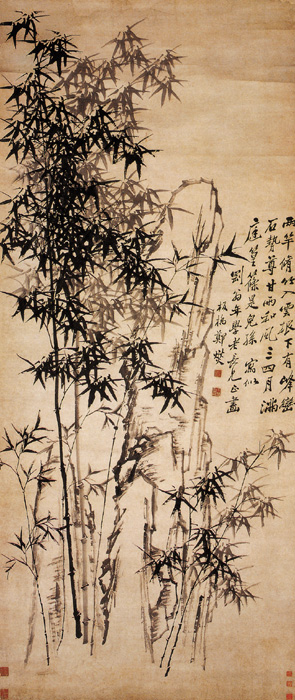 兩竿脩竹入雲根下有峰巒
石勢尊甘雨和風三四月滿
庭篁篠是兒孫 寫似
劉翁年學老長兄
板橋鄭燮